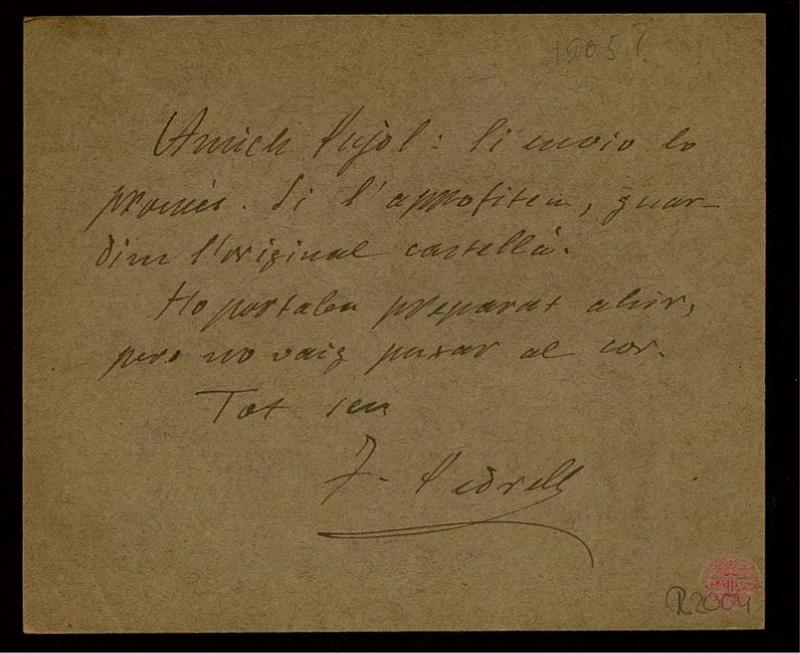 1905?
Amich Pujol: li envio lo
promés. Si l'aprofiten, guar-
dim l'original castellà.
Ho portaba preparat ahir,
pero no vaig pujar al cor.
Tot seu
F. Pedrell
R.2004